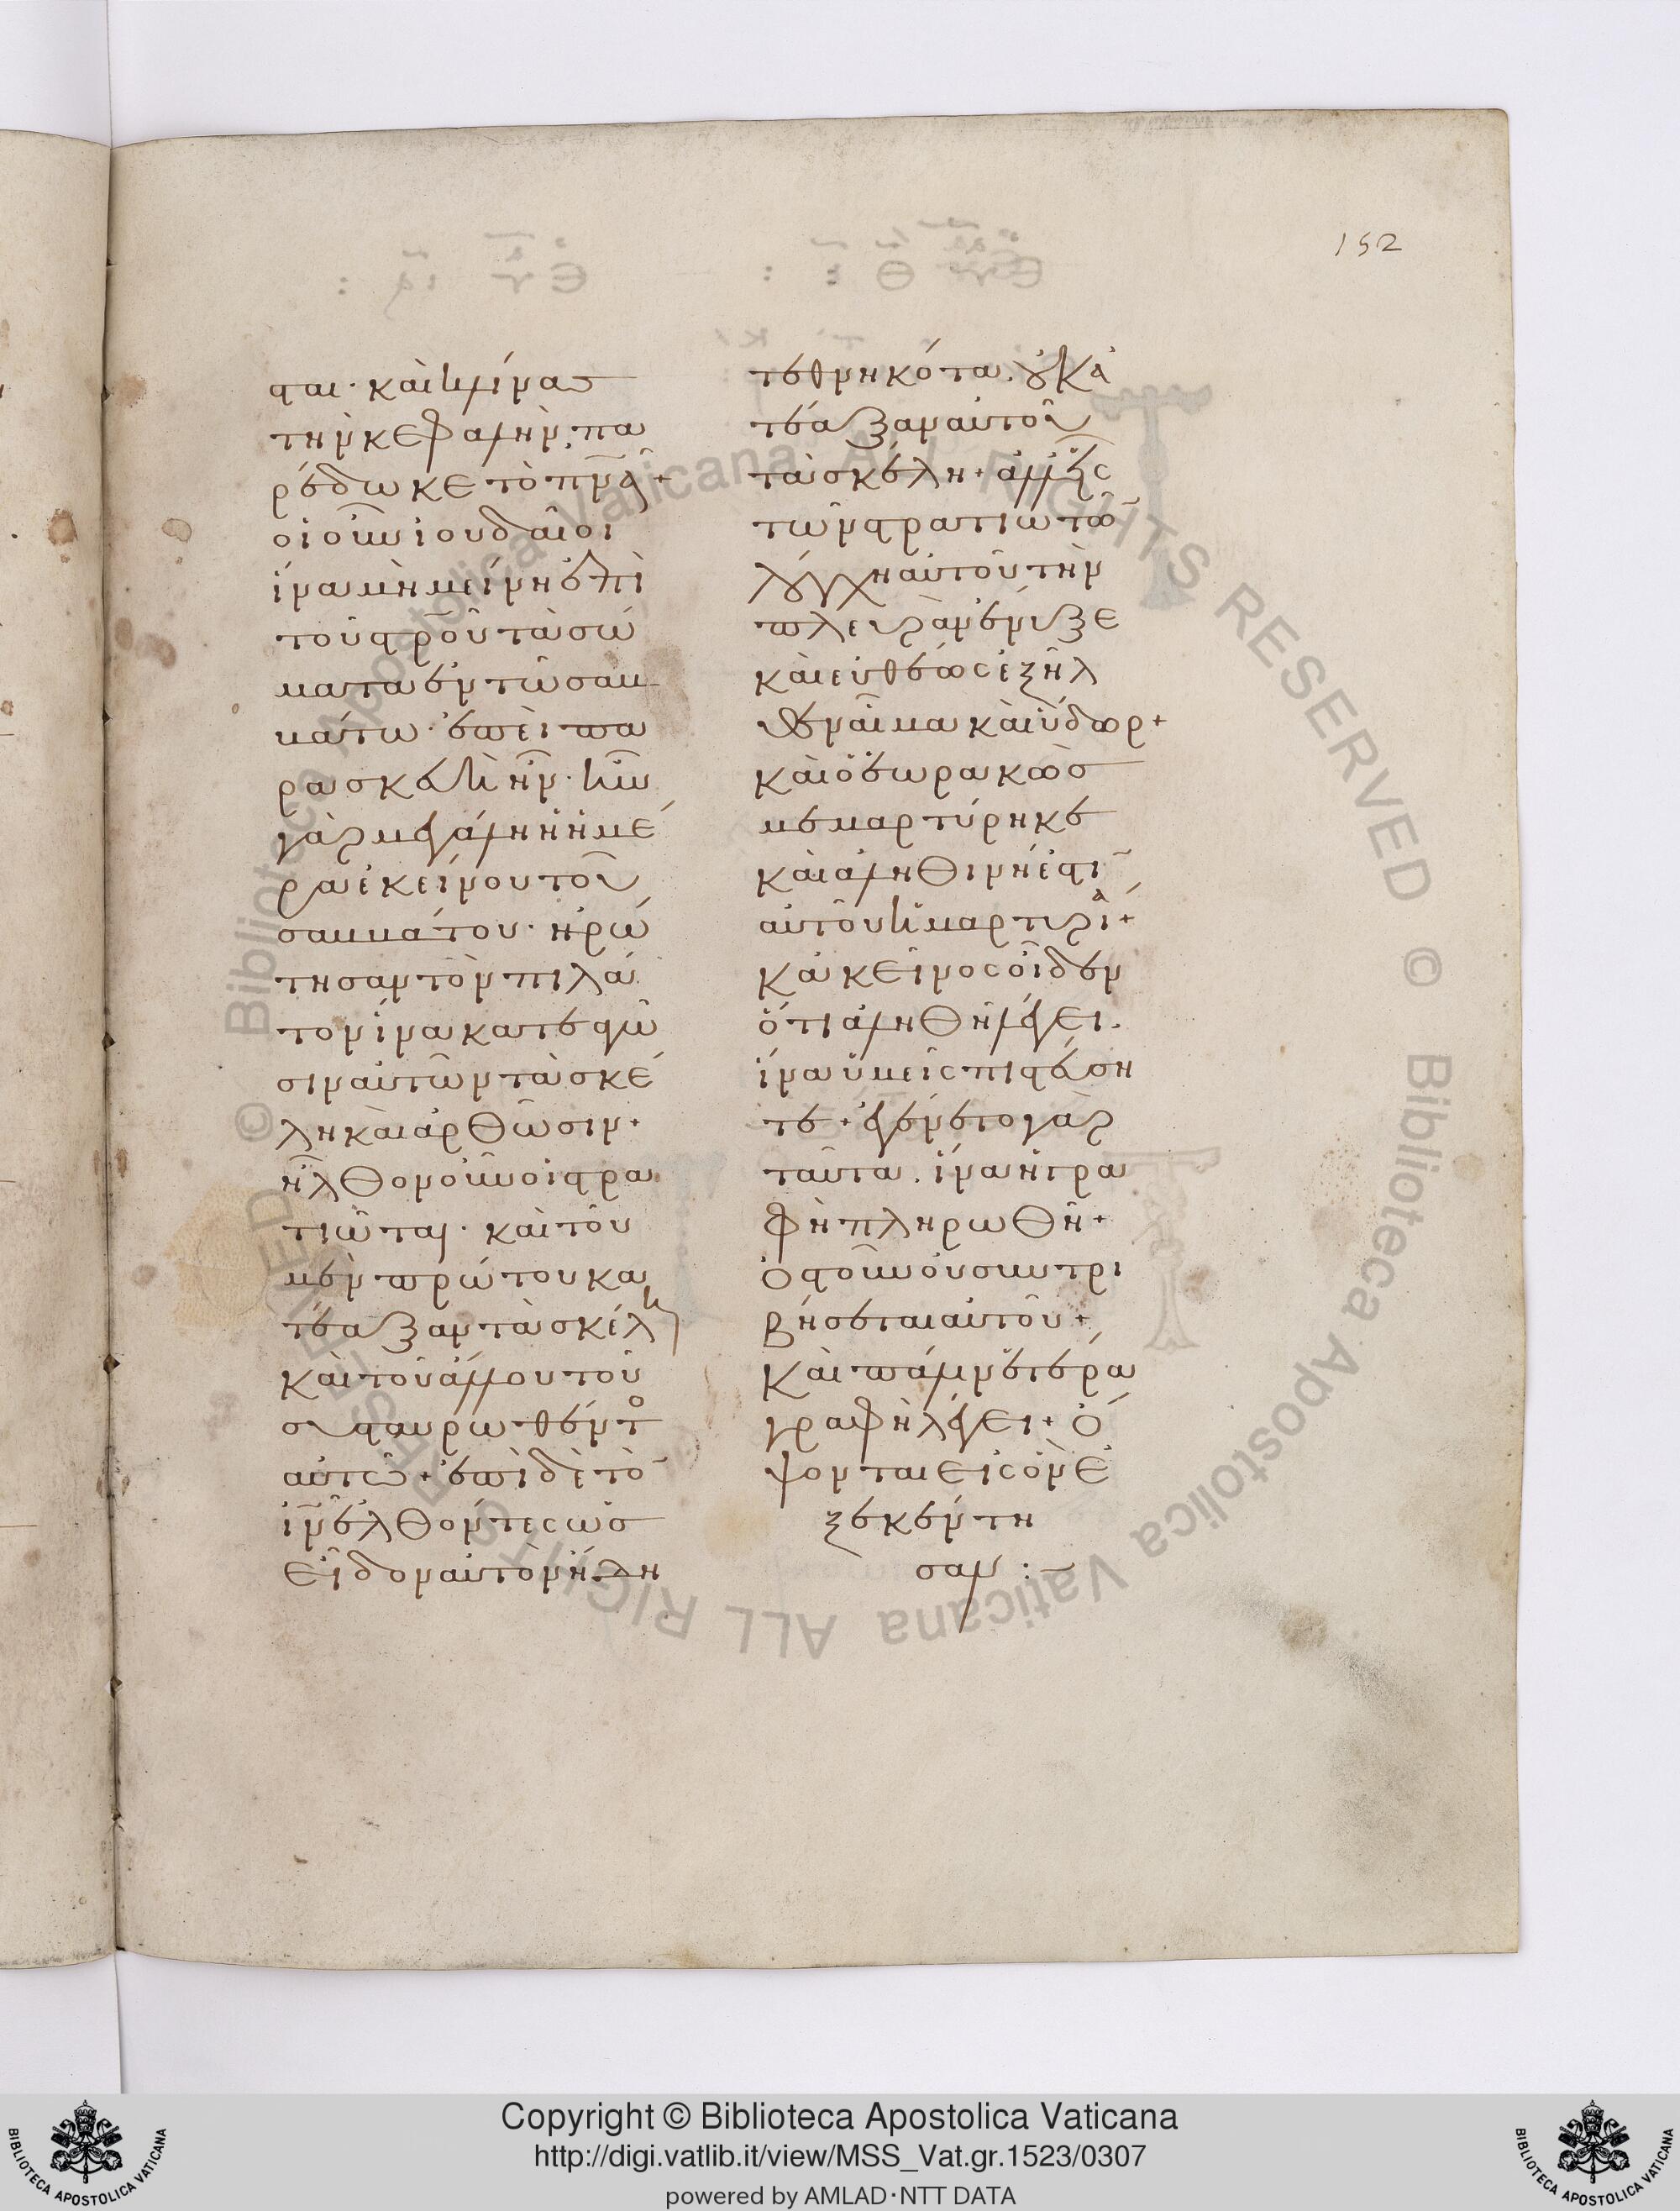 152
σται· καὶ κλίνας
τὴν κεφαλὴν, πα
ρέδωκε τὸ πνᾶ +
οἱ οὖν ἰουδαῖοι
ἵνα μὴ μείνη ἐπὶ
τοῦ στροῦ τὰ σώ
ματα ἐν τῶ σαβ
βάτω· ἐπεὶ πα
ρασκευὴ ἦν· ἦν
γὰρ μεγάλη ἡ ἡμέ
ρα ἐκείνου τοῦ
σαββάτου· ἠρώ
τησαν τὸν πιλᾶ
τον ἵνα κατεαγῶ
σιν αὐτῶν τὰ σκέ
λη καὶ ἀρθῶσιν +
ἦλθον οὖν οἱ στρα
τιῶται· καὶ τοῦ
μὲν πρώτου κα
τέαξαν τὰ σκέλη
καὶ τοῦ ἄλλου τοῦ
συσταυρωθέντο
αὐτῶ + ἐπὶ δὲ τὸ
ιν ἐλθόντες ὡς
εἶδον αὐτὸν ἤδη
τεθνηκότα. οὐ κα
τέαξαν αὐτοῦ
τὰ σκέλη + ἀλλ' εἷς
τῶν στρατιωτῶ
λόγχη αὐτοῦ τὴν
πλευρὰν ἔνυξε
καὶ εὐθέως ἐξῆλ
θεν αἷμα καὶ ὕδωρ +
καὶ ὁ ἑωρακὼς
μεμαρτύρηκε
καὶ ἀληθινή ἐστι
αὐτοῦ ἡ μαρτυρία +
κἀκεῖνος οἶδεν
ὅτι ἀληθῆ λέγει.
ἵνα ὑμεῖς πιστεύση
τε + ἐγένετο γὰρ
ταῦτα. ἵνα ἡ γρα
φὴ πληρωθῆ +
Ὀστοῦν οὐ συντρι
βήσεται αὐτοῦ +
Καὶ πάλιν ἑτέρα
γραφὴ λέγει + Ὄ
ψονται εἰς ὃν ἐ
ξεκέντη
σαν :–
Copyright © Biblioteca Apostolica Vaticana
http://digi.vatlib.it/view/MSS_Vat.gr.1523/0307
powered by AMLAD·NTT DATA